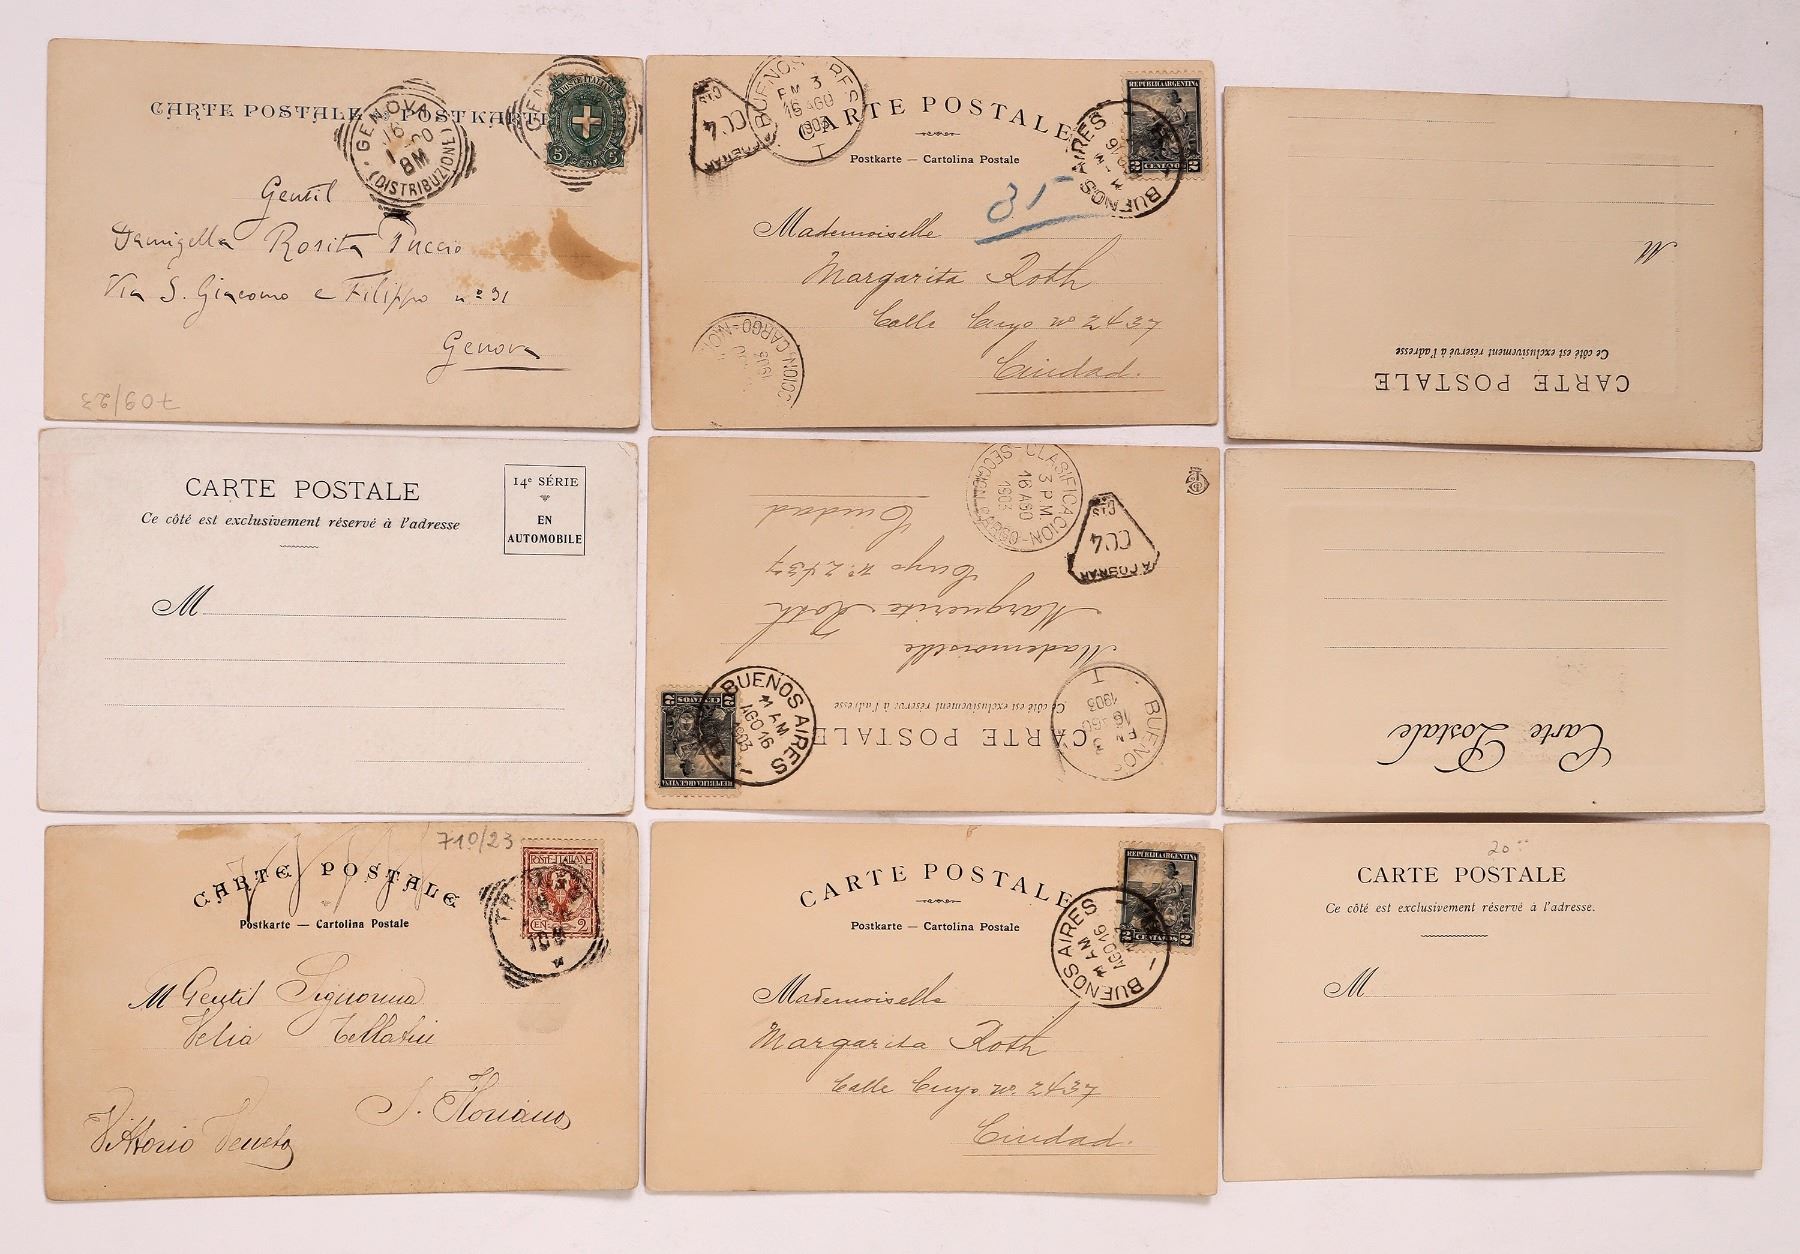 CARTE POSTALE POSTKARTE
GENOVA
16
1 00
8M
(DISTRIBUZIONE)
POSTE ITALIANE
5 5
Gentil
Damigella Rosita Puccio
Via S. Giacomo e Filippo nº 31
Genova
709/23
CARTE POSTALE
Postkarte — Cartolina Postale
BUENOS AIRES
3
16 AGO
1903
T
A COBRAR
CC4
CTS
REPUBLICA ARGENTINA
2 CENTAVOS 2
BUENOS AIRES
Mademoiselle
Margarita Roth
Calle Cuyo Nº 2437
Ciudad.
1903
CARTE POSTALE
Ce côté est exclusivement réservé à l'adresse
M
CARTE POSTALE
Ce côté est exclusivement réservé à l'adresse
14e SÉRIE
EN
AUTOMOBILE
M
CARTE POSTALE
Ce côté est exclusivement réservé à l'adresse
Mademoiselle
Marguerite Roth
Cuyo Nº 2437
Ciudad
CLASIFICACION
3 P M
16 AGO
1903
SECCION CARGO
A COBRAR
CC4
CTS
REPUBLICA ARGENTINA
2 CENTAVOS 2
BUENOS AIRES
11 AM
AGO 16
1903
BUENOS
3
16 AGO
1903
T
Carte Postale
CARTE POSTALE
Postkarte — Cartolina Postale
710/23
POSTE ITALIANE
CEN. 2
M Gentil Signorina
Velia
S. Floriano
Vittorio Veneto
CARTE POSTALE
Postkarte — Cartolina Postale
REPUBLICA ARGENTINA
2 CENTAVOS 2
BUENOS AIRES
11 AM
AGO 16
Mademoiselle
Margarita Roth
Calle Cuyo Nº 2437
Ciudad.
20
CARTE POSTALE
Ce côté est exclusivement réservé à l'adresse.
M